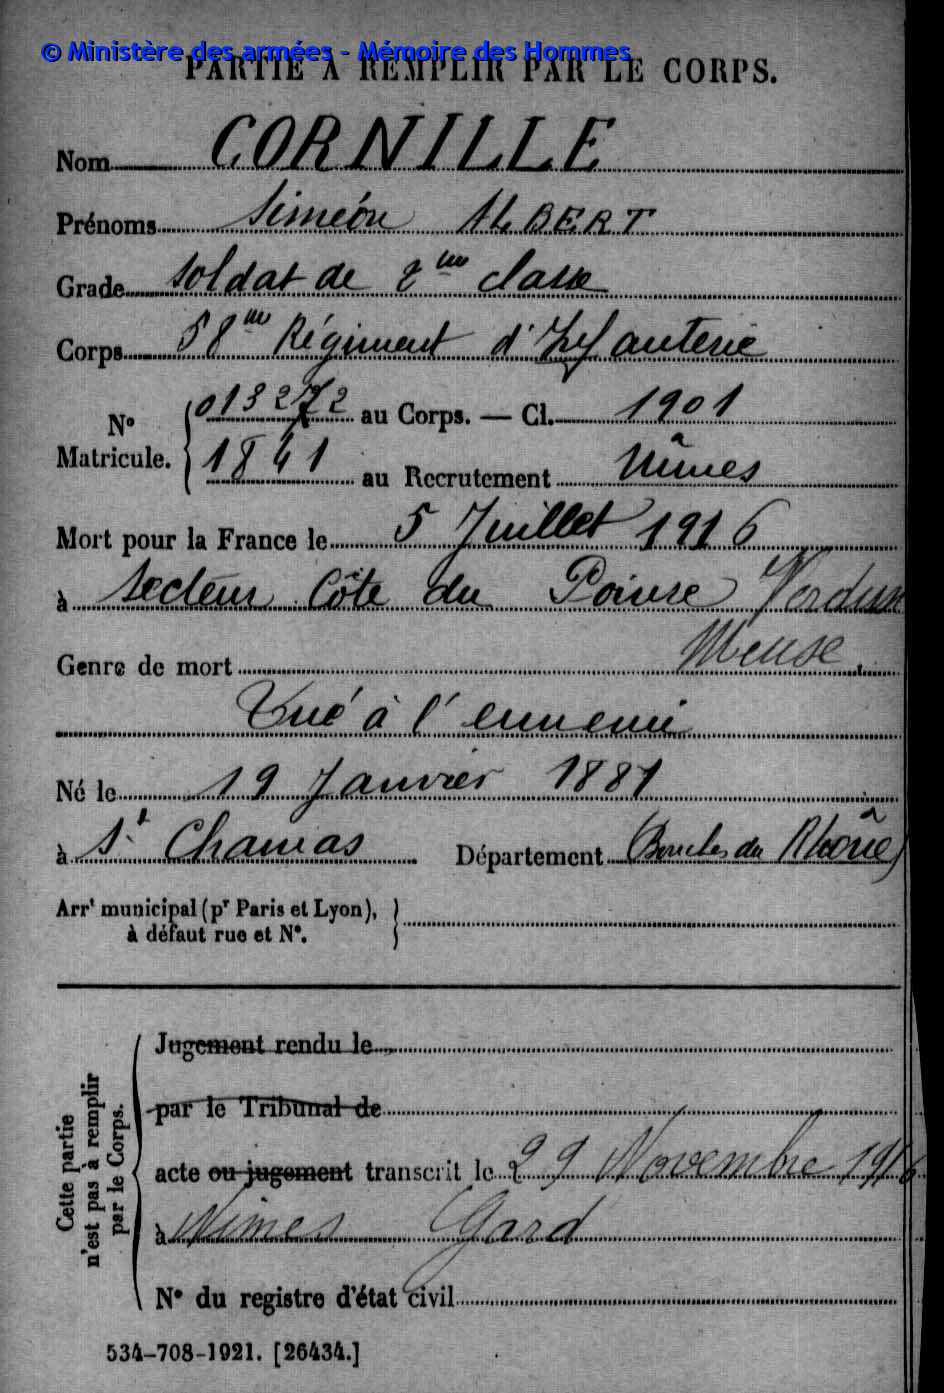 © Ministère des armées - Mémoire des Hommes
PARTIE À REMPLIR PAR LE CORPS.
Nom CORNILLE
Prénoms Siméon ALBERT
Grade soldat de 2me classe
Corps 58me Régiment d'Infanterie
No Matricule. { 013272 au Corps. — Cl. 1901
1841 au Recrutement Nîmes
Mort pour la France le 5 Juillet 1916
à Secteur Côte du Poivre Verdun
Meuse.
Genre de mort
Tué à l'ennemi
Né le 19 Janvier 1881
à St Chamas Département Bouches du Rhône)
Arrt municipal (pr Paris et Lyon), }
à défaut rue et No.
Cette partie
n'est pas à remplir
par le Corps.
Jugement rendu le
par le Tribunal de
acte ou jugement transcrit le 29 Novembre 1916
à Nimes Gard
No du registre d'état civil
534-708-1921. [26434.]